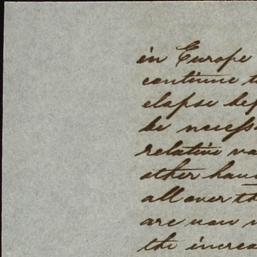 in Europe
continue t
elapse bef
be necess
relative va
other hand
all over th
are now
the increa